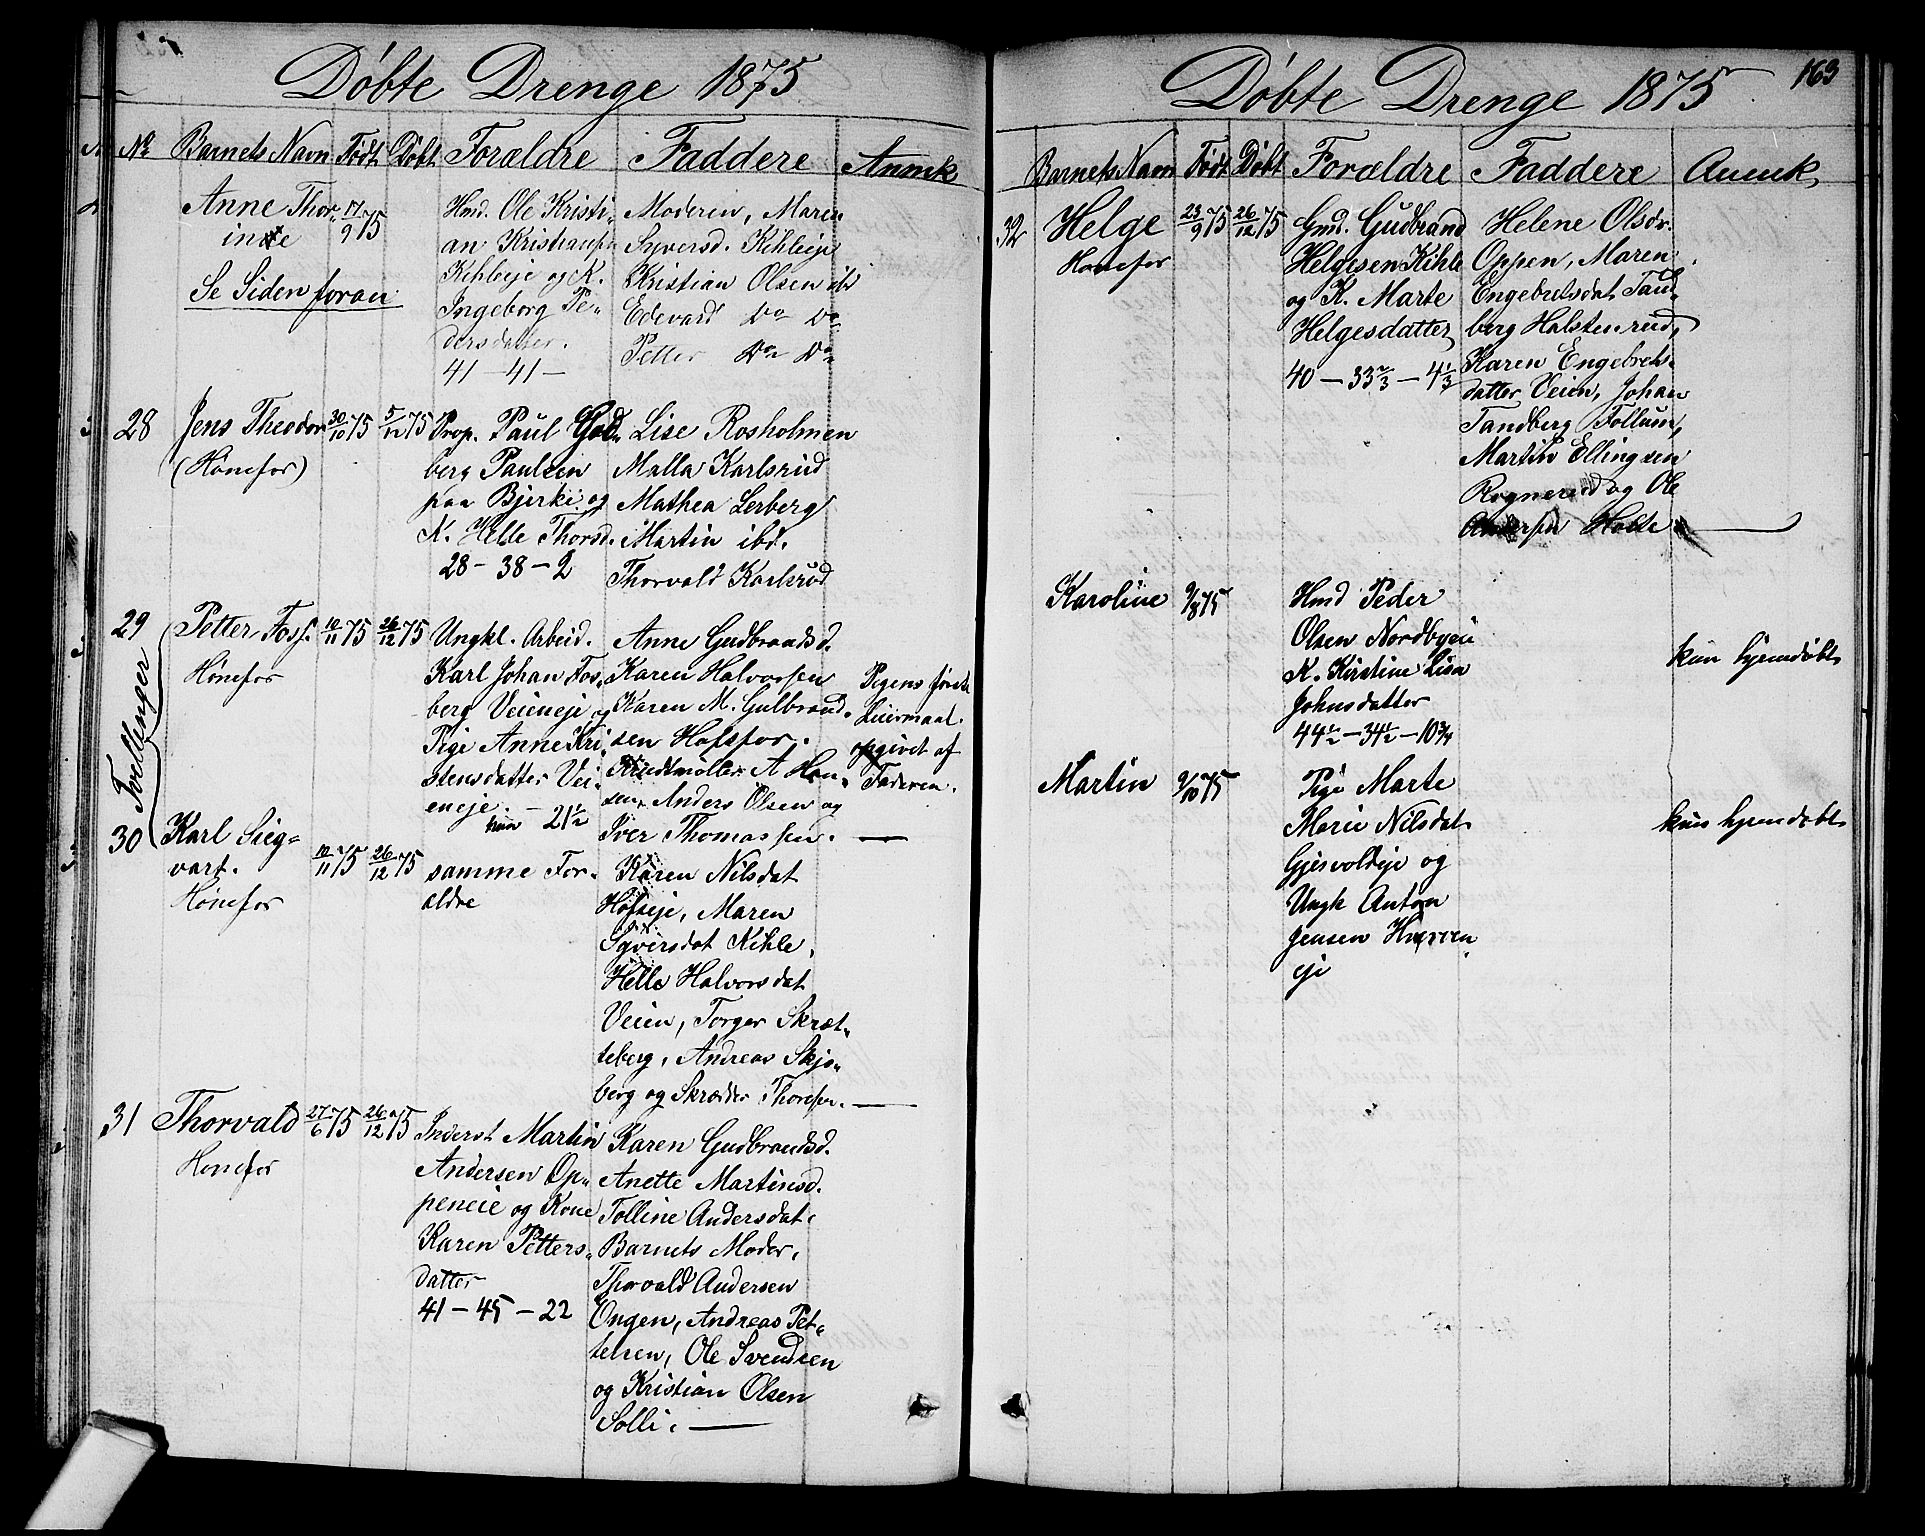 Døbte Drenge 1875
No Barnets Navn Født Døbt Forældre Faddere Anmk
Anne Thor-
ine
17/9 75
Se Siden foran
Hmd. Ole Kristi-
an Kristiansen
Kihleeje og K.
Ingeborg Pe-
dersdatter.
41 – 41 –
Moderen, Maren
Syversd. Kihleeje
Kristian Olsen ibd
Edevard Do Do
Petter Do Do
28 Jens Theodor
(Hønefos)
30/10 75 5/12 75
Prop. Paul God-
berg Paulsen
paa Bjerke og
K. Helle Thorsd.
28 – 38 – 2
Lise Rosholmen
Malla Karlsrud
Mathea Lerberg
Martin ibd.
Thorvald Karlsrud
Tvellinger
29 Petter Foss.
Hønefos
10/11 75 26/12 75
Ungkl. Arbeid.
Karl Johan Fos-
berg Veieneje og
Pige Anne Kri-
stensdatter Vei-
eneje.
– 21 1/2
Anne Gudbrandsd.
Karen Halvorsen
Karen M. Gulbrand-
sen Hofsfos.
A Han-
sen, Anders Olsen og
Iver Thomassen. —
Pigens første
Leiermaal
opgivet af
Faderen.
30 Karl Sieg-
vart.
Hønefos
10/11 75 26/12 75
samme For-
ældre
Karen Nilsdat
Hofseje, Maren
Syversdat Kihle,
Helle Halvorsdat
Veien, Torger Skræt-
teberg, Andreas Skjo-
berg og Skrædder Thoresen. —
31 Thorvald
Hønefos
27/6 75 26/12 75
Inderst Martin
Andersen Op-
peneie og Kone
Karen Petters-
datter
41 – 45 – 22
Karen Gudbrandsd.
Anette Martinsd.
Tolline Andersdat.
Barnets Moder,
Thorvald Andersen
Ongen, Andreas Pet-
tersen, Ole Svendsen
og Kristian Olsen
Solli. —
Døbte Drenge 1875 163
Barnets Navn Født Døbt Forældre Faddere Anmk,
32 Helge
Hønefos
23/9 75 26/12 75
Gmd. Gudbrand
Helgesen Kihle
og K. Marte
Helgesdatter
40 – 33 2/3 – 4 1/3
Helene Olsdr.
Oppen, Maren
Engebretsdat Tand-
berg Halstenrud,
Karen Engebrets-
datter Veien, Johan
Tandberg Follum,
Martin Ellingsen
Rognerud og Ole
Andersen Holte —
Karoline 9/8 75
Hmd Peder
Olsen Nordbyeie
K. Kirstine Lisa
Johnsdatter
44 1/2 – 34 1/2 – 10 3/4
kun hjemdøbt
Martin 9/10 75
Pige Marte
Marie Nilsdat
Gjesvoldeje og
Ungk Anton
Jensen
eje
kun hjemdøbt